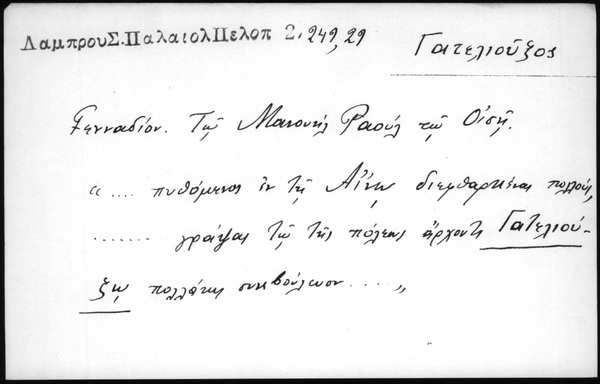 ΛαμπρουΣ.ΠαλαιολΠελοπ 2. 249, 29
Γατελιοῦζος
Γενναδίου. Τῷ Μανουὴλ Ραοὺλ τῷ Οἰσῇ.
« .... πυθόμενος ἐν τῇ Αἴνῳ διεφθαρκέναι πολλούς,
....... γράψας τῷ τῆς πόλεως ἄρχοντι Γατελιού-
ζῳ πολλάκις συνεβούλευον .... »